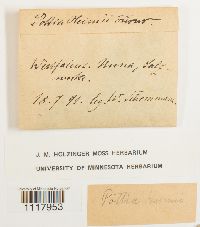 Pottia Heimii
Westfalen. Unna, Salz-
werke.
18.7.91. leg.
J. M. HOLZINGER MOSS HERBARIUM
UNIVERSITY OF MINNESOTA HERBARIUM
1117953
Pottia